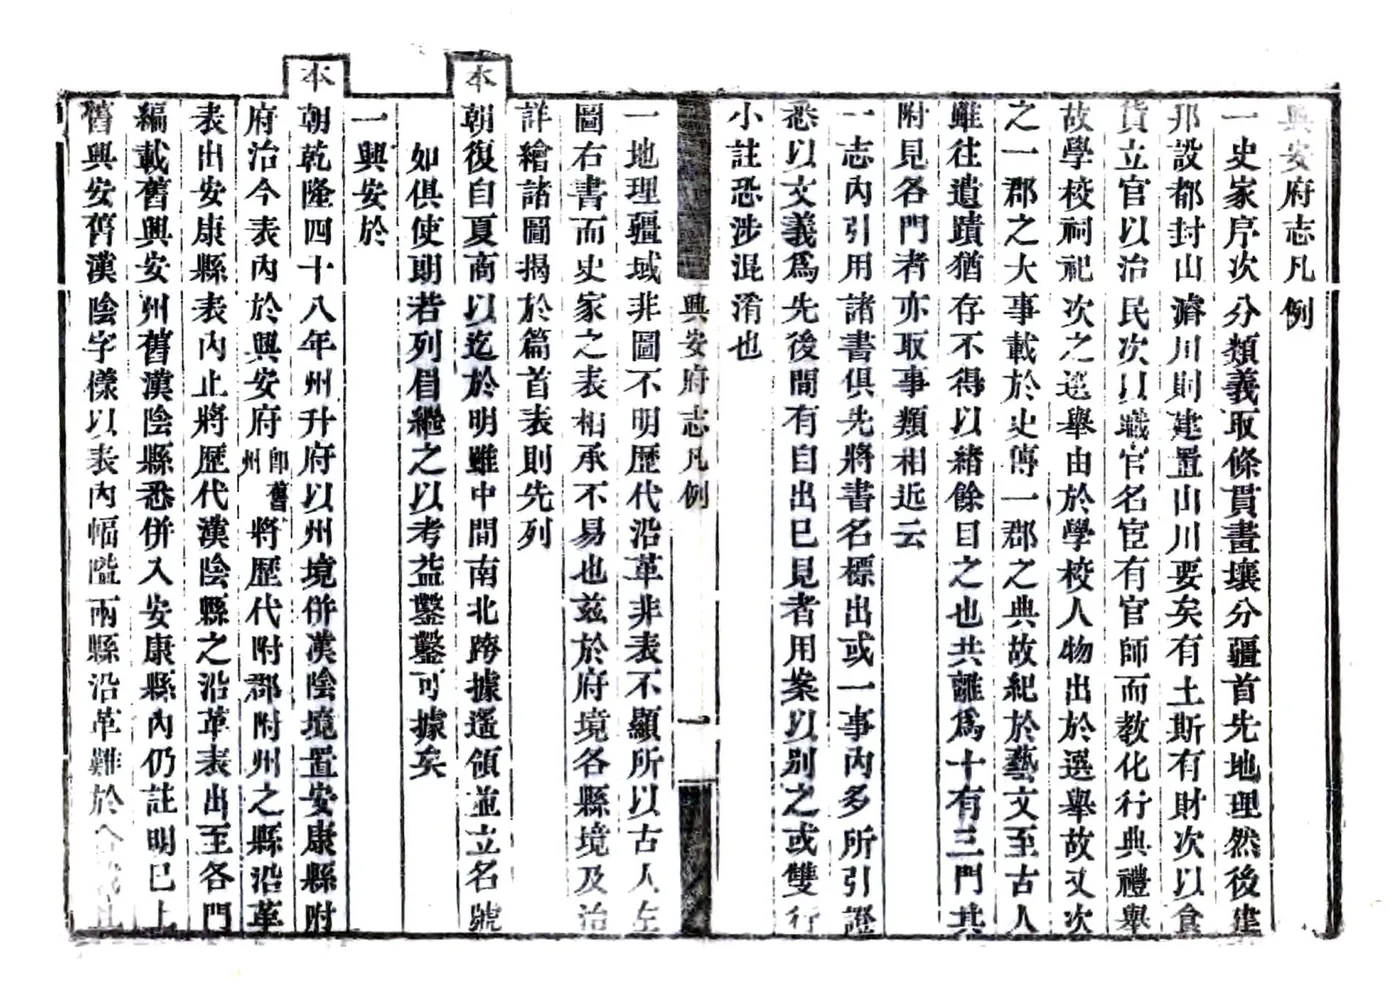 興安府志凡例
一史家序次分類義取條貫畫壤分疆首先地理然後建
邦設都封山濬川則建置山川要矣有土斯有財次以食
貨立官以治民次以職官名宦有官師而教化行典禮舉
故學校祠祀次之選舉由於學校人物出於選舉故又次
之一郡之大事載於史傳一郡之典故紀於藝文至古人
雖往遺蹟猶存不得以緒餘目之也共離爲十有三門其
附見各門者亦取事類相近云
一志內引用諸書俱先將書名標出或一事內多所引證
悉以文義爲先後間有自出已見者用案以別之或雙行
小註恐涉混淆也
興安府志凡例
一
一地理疆域非圖不明歷代沿革非表不顯所以古人左
圖右書而史家之表相承不易也茲於府境各縣境及治
詳繪諸圖揭於篇首表則先列
本
朝復自夏商以迄於明雖中間南北跨據遙領並立名號
如俱使朗若列眉繼之以考益鑿鑿可據矣
一興安於
本
朝乾隆四十八年州升府以州境併漢陰境置安康縣附
府治今表內於興安府卽舊州將歷代附郡附州之縣沿革
表出安康縣表內止將歷代漢陰縣之沿革表出至各門
編載舊興安州舊漢陰縣悉併入安康縣內仍註明已上
舊興安舊漢陰字樣以表內幅隘兩縣沿革難於